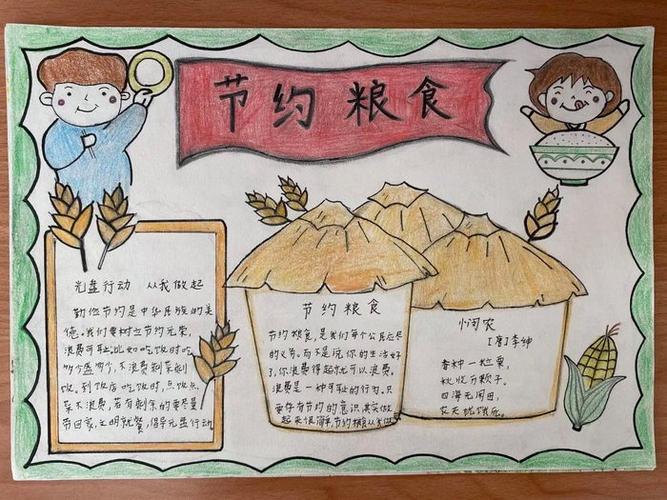 节约 粮食
光盘行动 从我做起
勤俭节约是中华民族的美
德。我们要树立节约光荣,
浪费可耻。比如吃饭时吃
多少盛多少,不浪费剩菜剩
饭。到饭店吃饭时,点饭点
菜不浪费,若有剩余的要尽量
带回家,文明就餐,倡导光盘行动
节约粮食
节约粮食,是我们每个公民应尽
的义务。而不是说你的生活好
了,你浪费得起就可以浪费。
浪费是一种可耻的行为。只
要存有节约的意识,其实做
起来很简单,节约粮从我做
悯农
【唐】李绅
春种一粒粟,
秋收万颗子。
四海无闲田,
农夫犹饿死。